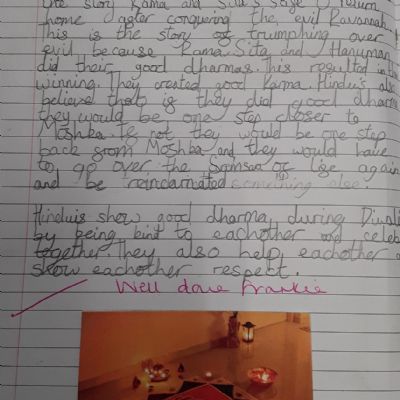 the story Rama and Sita's safe return
home after conquering the evil Ravannah!
This is the story of trumphing over
evil because Rama. Sita and Hanuman
did their good dharmas. This resulted in the
winning. They created good Karma. Hindu's also
believe that if they did good dharma
they would be one step closer to
Moshka. If not they would be one step
back from Moshka and they would have
to go over the Samsaa of life again
and be reincarnated something else.
Hinduis show good dharma during Diwali
by being kind to eachother and celeb
together. They also help eachother a
show eachother respect.
Well done Frankie